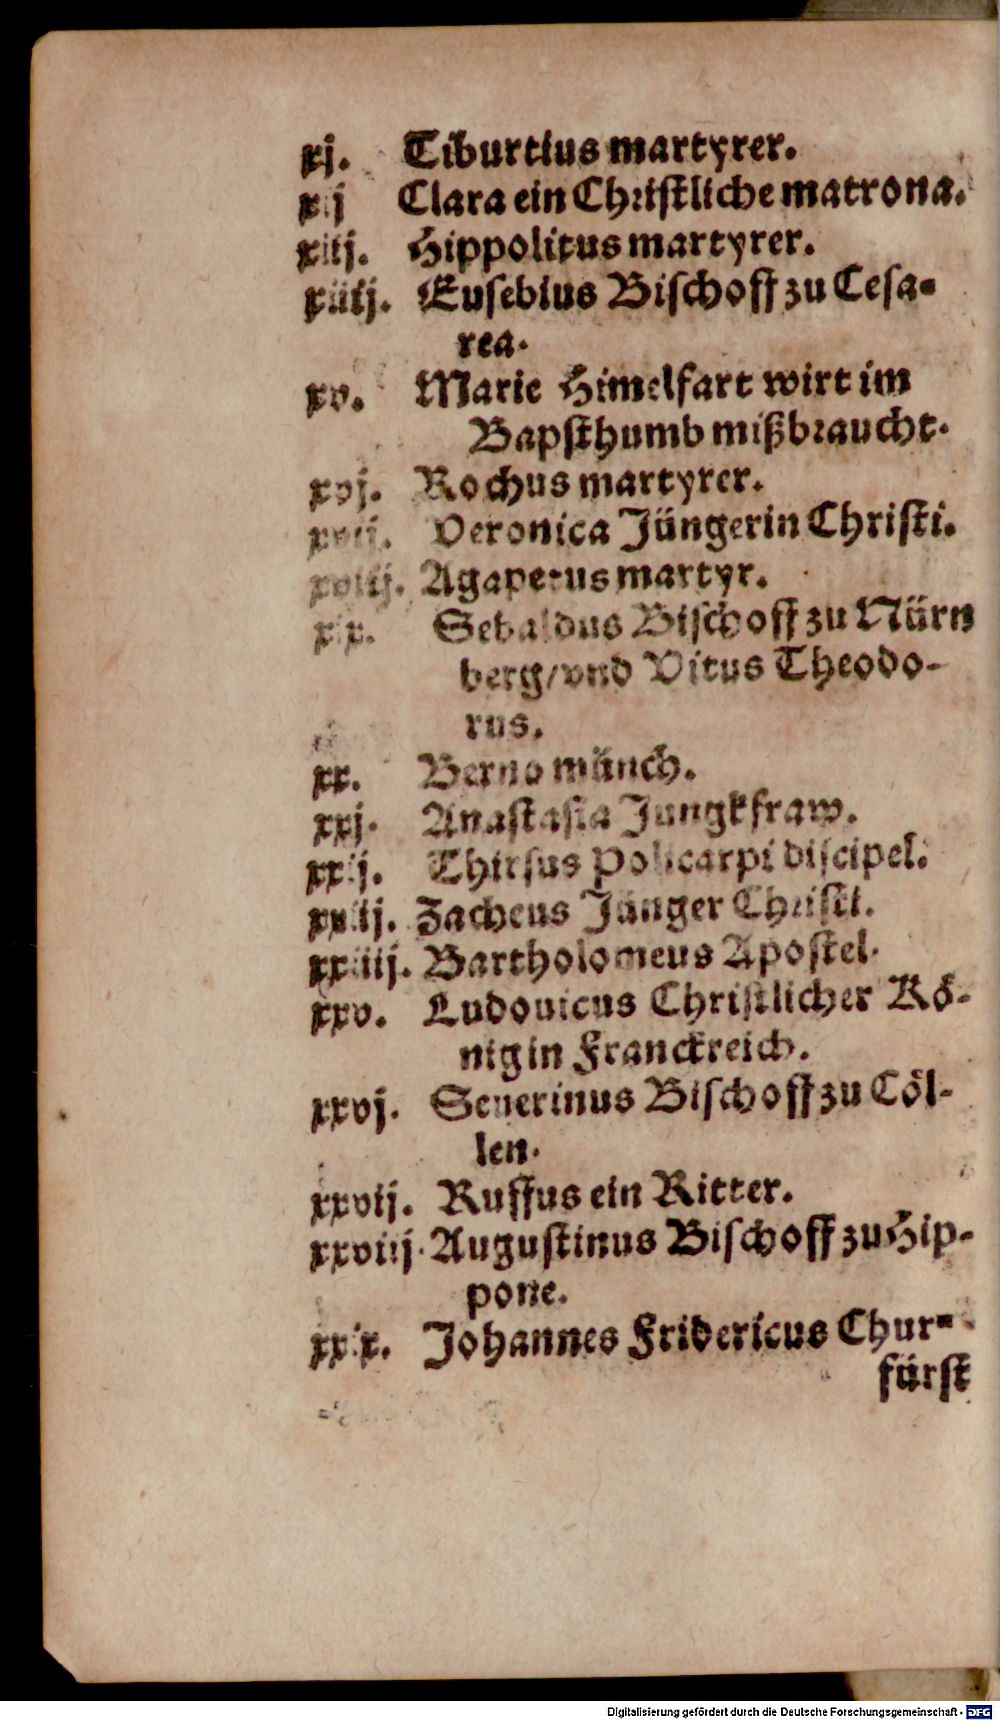 xj. Tiburtius martyrer.
xij Clara ein Christliche matrona.
xiij. Hippolitus martyrer.
xiiij. Eusebius Bischoff zu Cesa-
rea.
xv. Marie Himelfart wirt im
Bapsthumb mißbraucht.
xvj. Rochus martyrer.
xvij. Veronica Jüngerin Christi.
xviij. Agapetus martyr.
xix. Sebaldus Bischoff zu Nürn
berg/vnd Vitus Theodo-
rus.
xx. Berno münch.
xxj. Anastasia Jungkfraw.
xxij. Thirsus Policarpi discipel.
xxiij. Zacheus Jünger Christi.
xxiiij. Bartholomeus Apostel.
xxv. Ludouicus Christlicher Kö-
nig in Franckreich.
xxvj. Seuerinus Bischoff zu Cöl-
len.
xxvij. Ruffus ein Ritter.
xxviij. Augustinus Bischoff zu Hip-
pone.
xxix. Johannes Fridericus Chur-
fürst
Digitalisierung gefördert durch die Deutsche Forschungsgemeinschaft - DFG